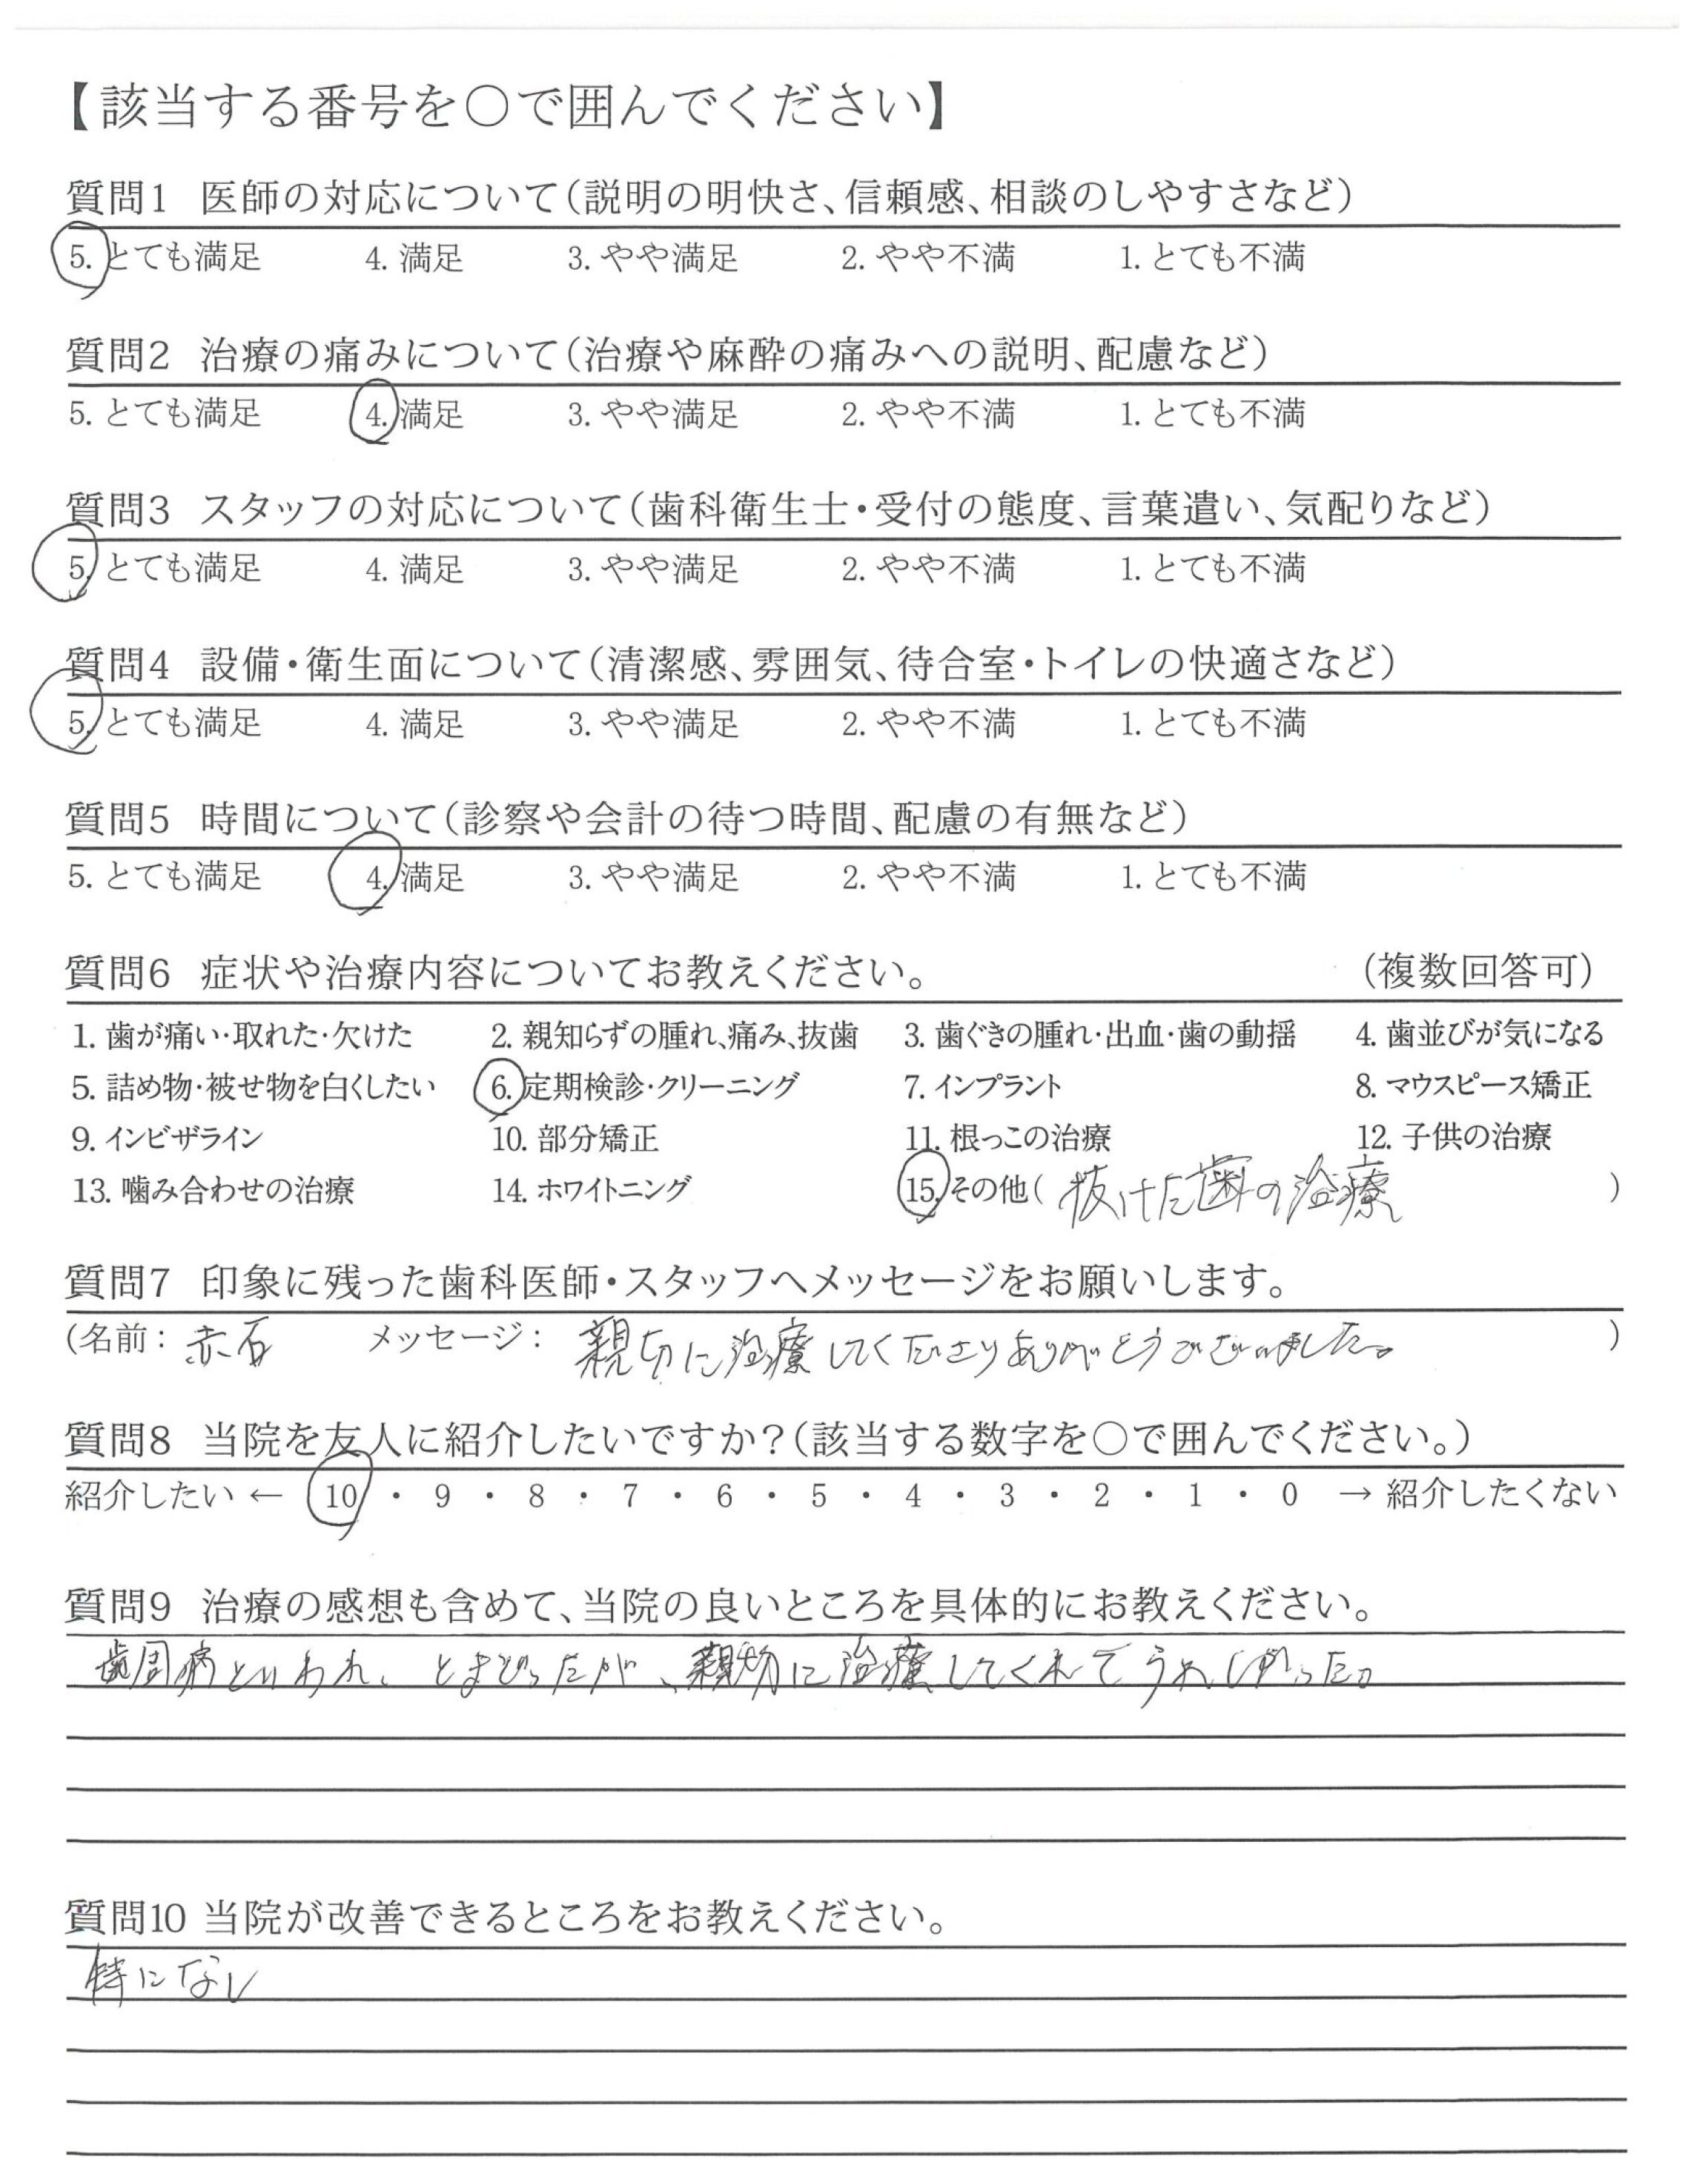 【該当する番号を○で囲んでください】
質問1 医師の対応について(説明の明快さ、信頼感、相談のしやすさなど)
5. とても満足 4. 満足 3. やや満足 2. やや不満 1. とても不満
質問2 治療の痛みについて(治療や麻酔の痛みへの説明、配慮など)
5. とても満足 4. 満足 3. やや満足 2. やや不満 1. とても不満
質問3 スタッフの対応について(歯科衛生士・受付の態度、言葉遣い、気配りなど)
5. とても満足 4. 満足 3. やや満足 2. やや不満 1. とても不満
質問4 設備・衛生面について(清潔感、雰囲気、待合室・トイレの快適さなど)
5. とても満足 4. 満足 3. やや満足 2. やや不満 1. とても不満
質問5 時間について(診察や会計の待つ時間、配慮の有無など)
5. とても満足 4. 満足 3. やや満足 2. やや不満 1. とても不満
質問6 症状や治療内容についてお教えください。 (複数回答可)
1. 歯が痛い・取れた・欠けた 2. 親知らずの腫れ、痛み、抜歯 3. 歯ぐきの腫れ・出血・歯の動揺 4. 歯並びが気になる
5. 詰め物・被せ物を白くしたい 6. 定期検診・クリーニング 7. インプラント 8. マウスピース矯正
9. インビザライン 10. 部分矯正 11. 根っこの治療 12. 子供の治療
13. 噛み合わせの治療 14. ホワイトニング 15. その他( 抜けた歯の治療 )
質問7 印象に残った歯科医師・スタッフへメッセージをお願いします。
(名前: 赤石 メッセージ: 親切に治療してくださりありがとうございました。 )
質問8 当院を友人に紹介したいですか?(該当する数字を○で囲んでください。)
紹介したい ← 10 ・ 9 ・ 8 ・ 7 ・ 6 ・ 5 ・ 4 ・ 3 ・ 2 ・ 1 ・ 0 → 紹介したくない
質問9 治療の感想も含めて、当院の良いところを具体的にお教えください。
歯周病といわれ、とまどったが、親切に治療してくれてうれしかった。
質問10 当院が改善できるところをお教えください。
特になし